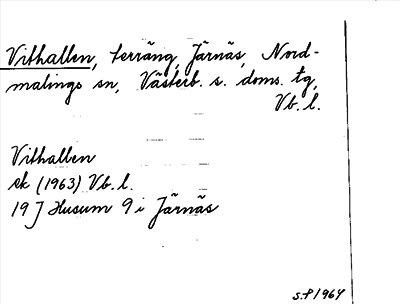 Vithallen, terräng, Järnäs, Nord-
malings sn, Västerb. s. doms. tg,
Vb. l.
Vithallen
ek (1963) Vb. l.
19 J Husum 9 i Järnäs
S.F 1964